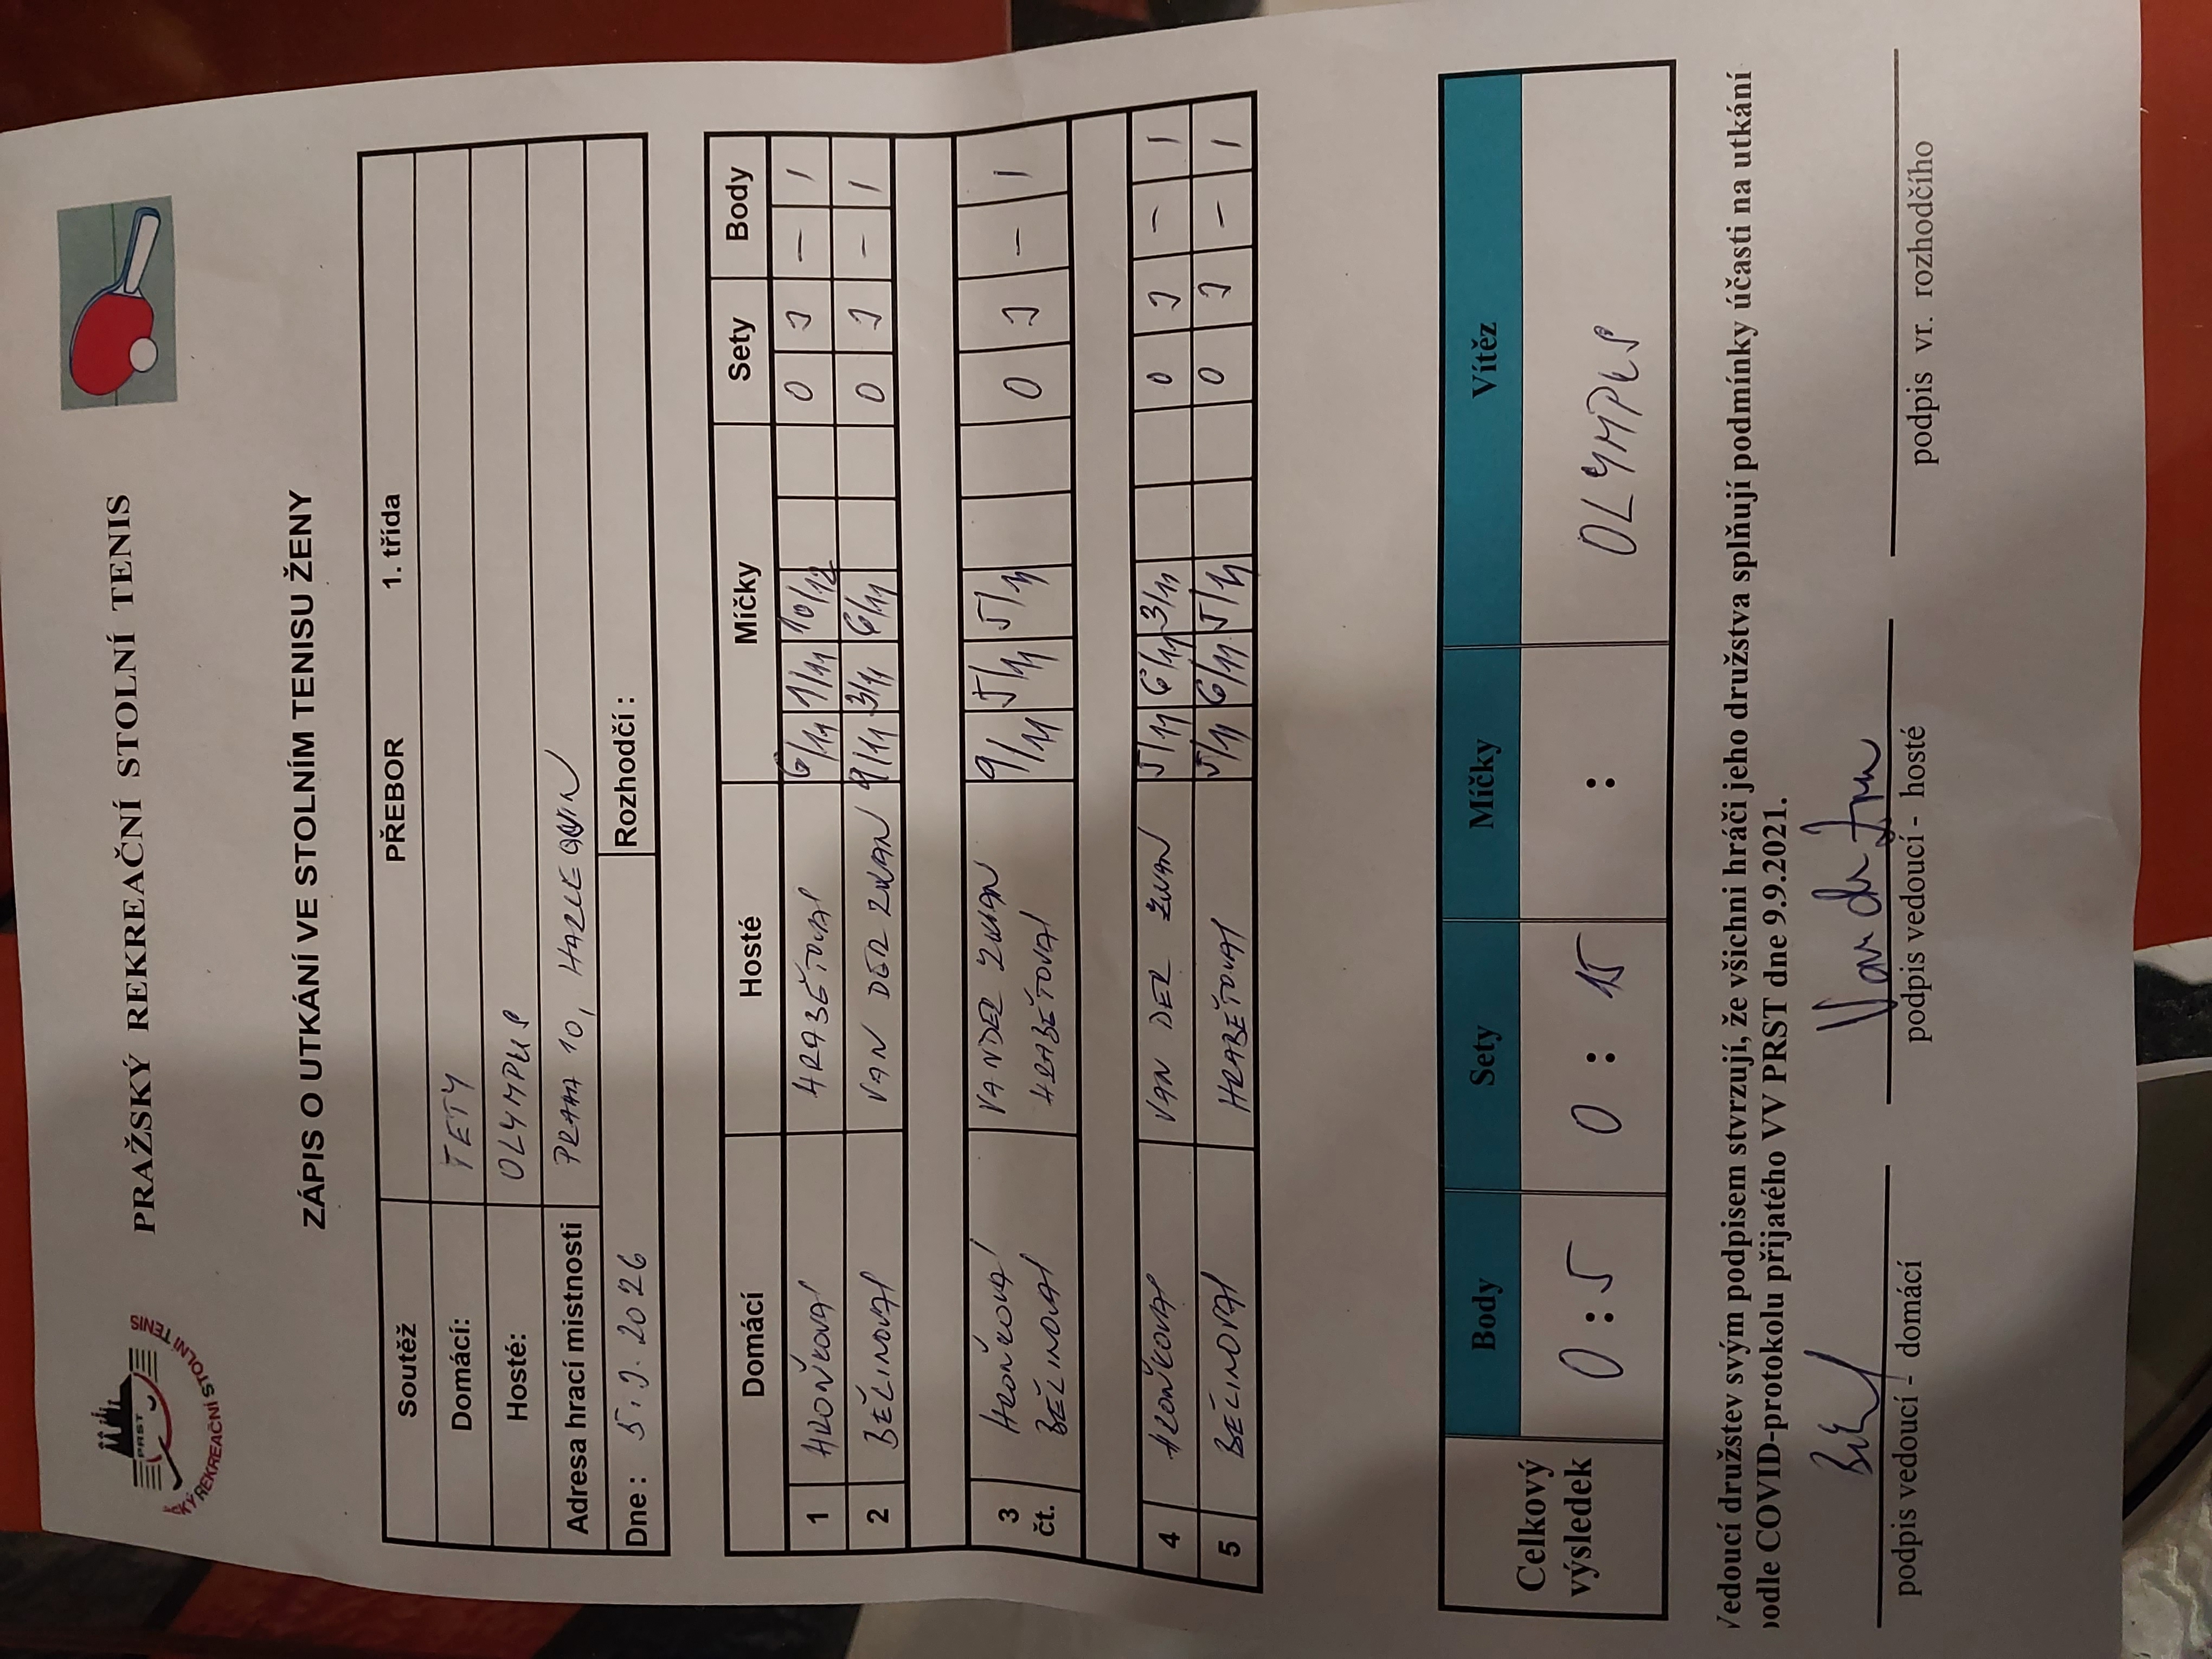 PRAŽSKÝ REKREAČNÍ STOLNÍ TENIS
PRST
KÝ REKREAČNÍ STOLNÍ TENIS
ZÁPIS O UTKÁNÍ VE STOLNÍM TENISU ŽENY
Soutěž PŘEBOR 1. třída
Domácí: TETY
Hosté: OLYMPUS
Adresa hrací místnosti PRAHA 10,
Dne: 5.3.2026 Rozhodčí :
Domácí Hosté Míčky Sety Body
1 HRONÍKOVÁ HRABĚTOVÁ 6/11 1/11 10/12 0 3 – 1
2 BĚLINOVÁ VAN DER ZWAN 9/11 3/11 6/11 0 3 – 1
3 HRONÍKOVÁ VAN DER ZWAN 9/11 5/11 5/11 0 3 – 1
čt. BĚLINOVÁ HRABĚTOVÁ
4 HRONÍKOVÁ VAN DER ZWAN 5/11 6/11 3/11 0 3 – 1
5 BĚLINOVÁ HRABĚTOVÁ 5/11 6/11 5/11 0 3 – 1
Celkový výsledek Body Sety Míčky Vítěz
0 : 5 0 : 15 : OLYMPUS
Vedoucí družstev svým podpisem stvrzují, že všichni hráči jeho družstva splňují podmínky účasti na utkání
podle COVID-protokolu přijatého VV PRST dne 9.9.2021.
podpis vedoucí - domácí podpis vedoucí - hosté podpis vr. rozhodčího